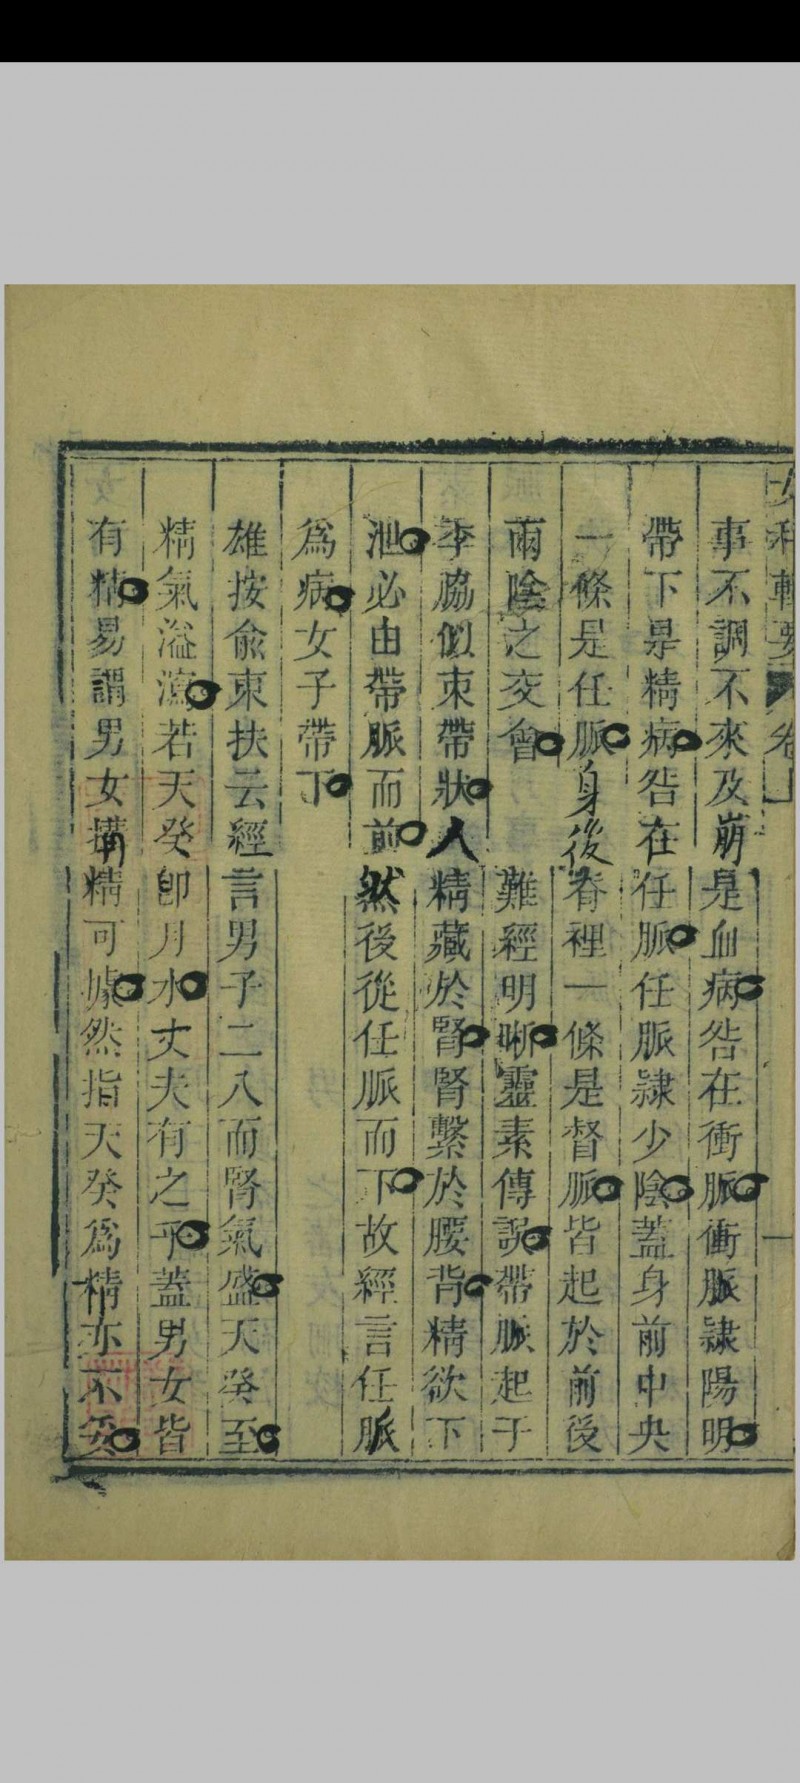 女科輯要 卷上
事不調不來及崩是血病咎在衝脈衝脈隷陽明
帶下是精病咎在任脈任脈隷少陰蓋身前中央
一條是任脈身後脊裡一條是督脈皆起於前後
兩陰之交會難經明晰靈素傳誤帶脈起于
季脇似束帶狀人精藏於腎腎繫於腰背精欲下
泄必由帶脈而前然後從任脈而下故經言任脈
爲病女子帶下
雄按俞東扶云經言男子二八而腎氣盛天癸至
精氣溢瀉若天癸卽月水丈夫有之乎蓋男女皆
有精易謂男女搆精可據然指天癸爲精亦不妥